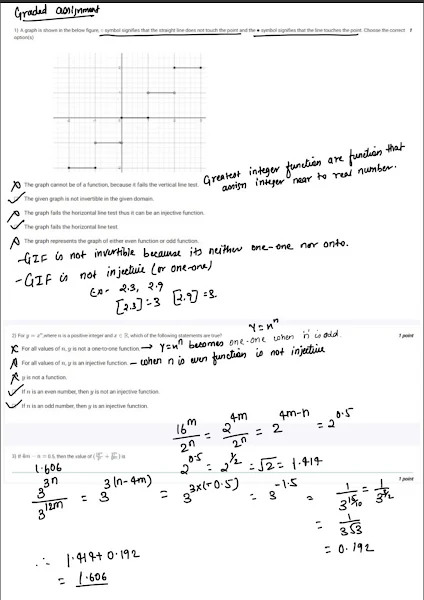 Graded assignment
1) A graph is shown in the below figure, ○ symbol signifies that the straight line does not touch the point and the ● symbol signifies that the line touches the point. Choose the correct option(s)
The graph cannot be of a function, because it fails the vertical line test.
Greatest integer function are function that assign integer near to real number.
The given graph is not invertible in the given domain.
The graph fails the horizontal line test thus it can be an injective function.
The graph fails the horizontal line test
The graph represents the graph of either even function or odd function.
- GIF is not invertible because its neither one-one nor onto.
- GIF is not injective (or one-one)
Ex- 2.3, 2.9
[2.3]=3 [2.9]=3.
y=xⁿ
2) For y = xⁿ, where n is a positive integer and x ∈ ℝ, which of the following statements are true? 1 point
For all values of n, y is not a one-to-one function. → y=xⁿ becomes one-one when n is odd
For all values of n, y is an injective function. — when n is even function is not injective
y is not a function.
If n is an even number, then y is not an injective function.
If n is an odd number, then y is an injective function.
16^m/2^n = 2^4m/2^n = 2^4m-n = 2^0.5
3) If 4m - n = 0.5, then the value of
2^0.5 = 2^1/2 = √2 = 1.414
1 point
1.606
3^3n/3^12m = 3^3(n-4m) = 3^3×(-0.5) = 3^-1.5 = 1/3^15/10 = 1/3^3/2
= 1/3√3
= 0.192
∴ 1.414+0.192
= 1.606